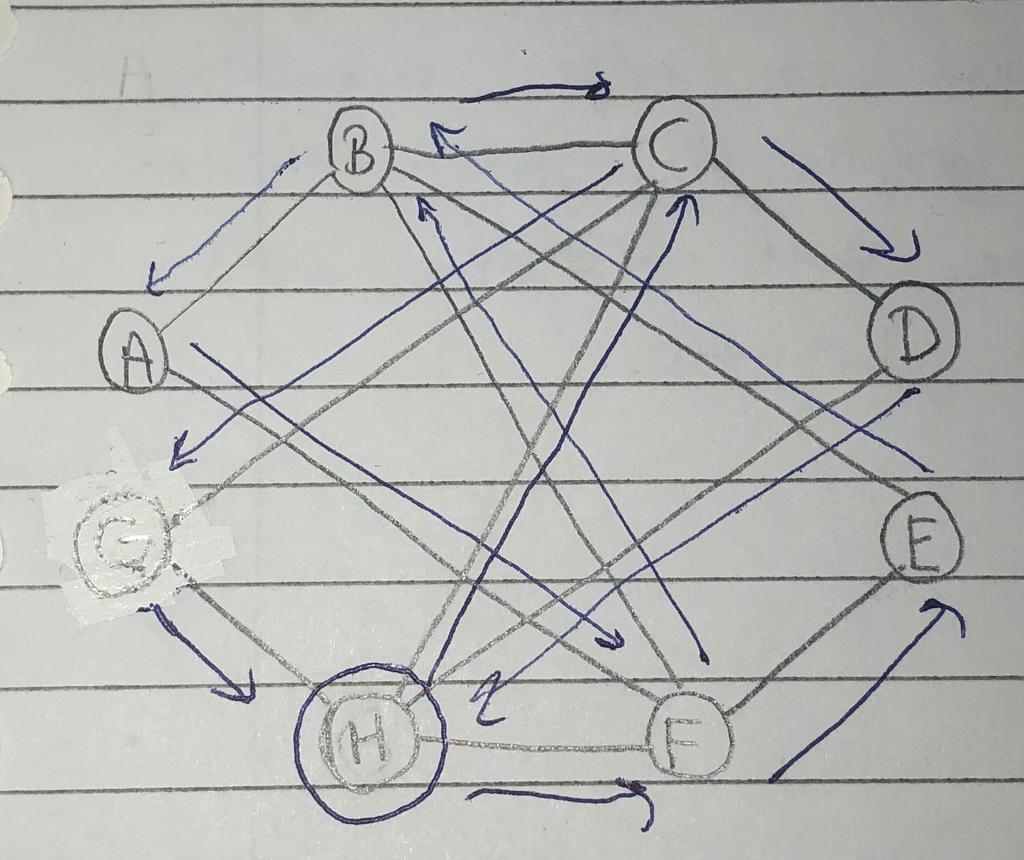 A
B
C
A
D
G
E
H
F